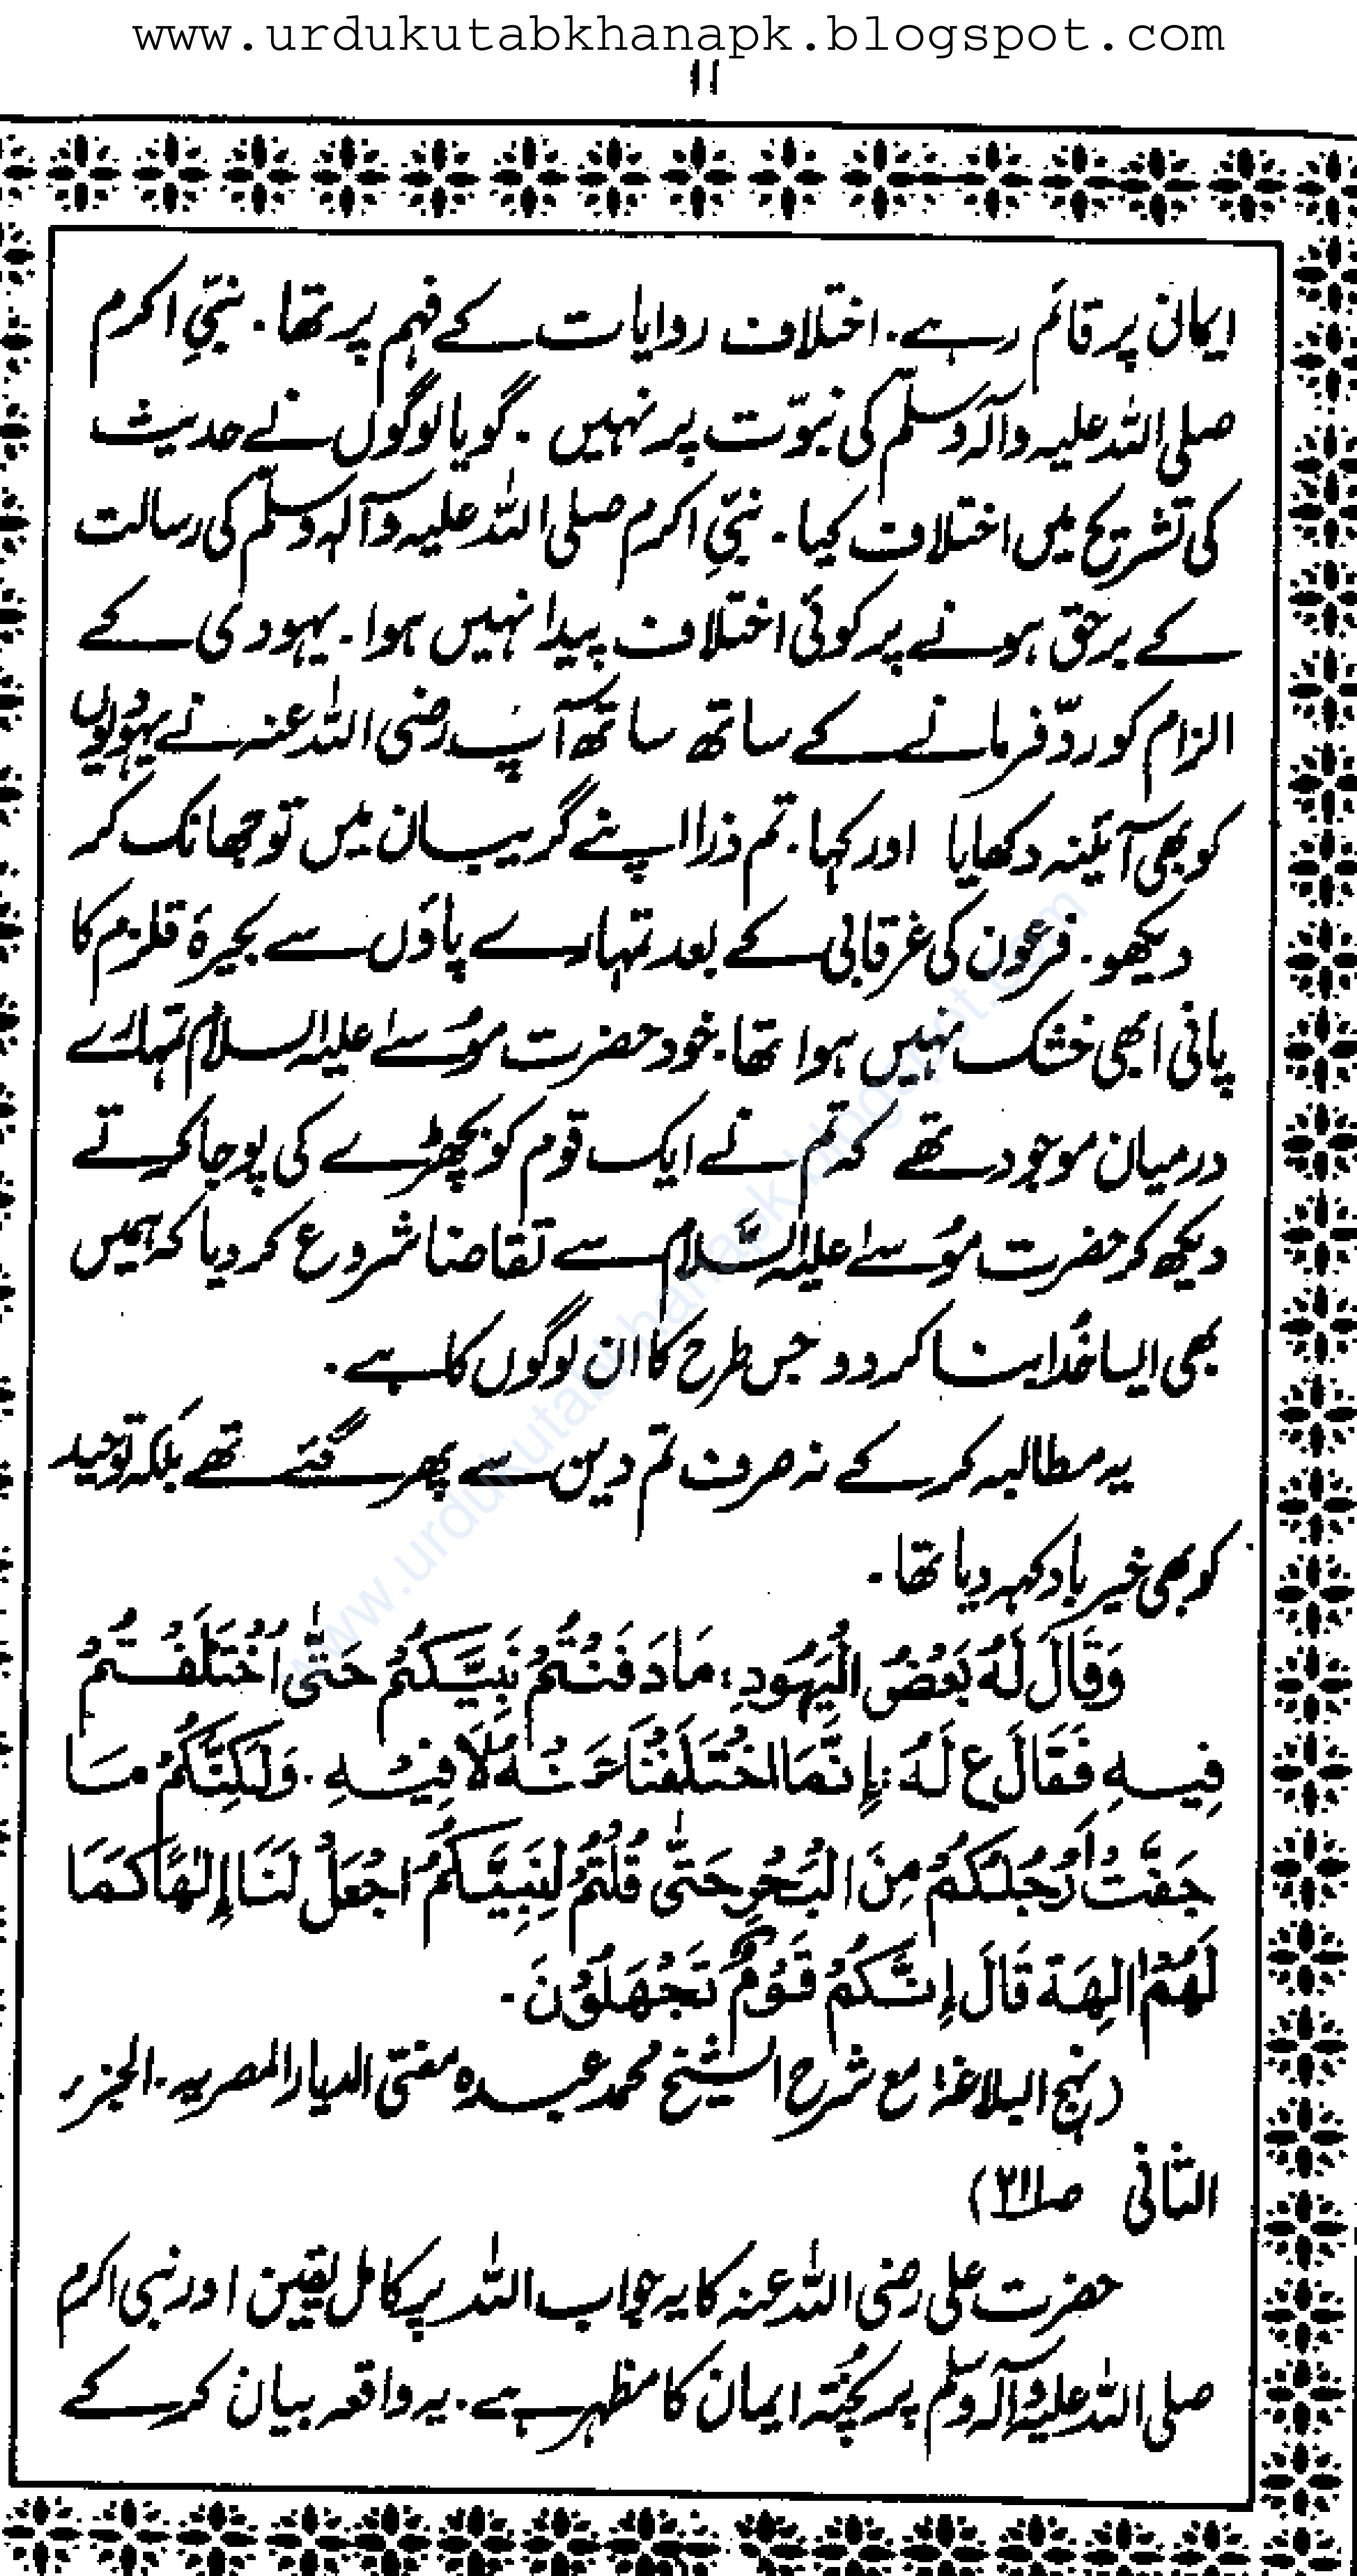 www.urdukutabkhanapk.blogspot.com
۱۱
ایمان پر قائم رہے۔ اختلاف روایات کے فہم پر تھا۔ نبیِّ اکرم
صلی اللہ علیہ وآلہٖ وسلّم کی نبوّت پر نہیں۔ گویا لوگوں نے حدیث
کی تشریح میں اختلاف کیا۔ نبیِّ اکرم صلی اللہ علیہ وآلہٖ وسلّم کی رسالت
کے برحق ہونے پر کوئی اختلاف پیدا نہیں ہوا۔ یہودی کے
الزام کو ردّ فرمانے کے ساتھ ساتھ آپ رضی اللہ عنہ نے یہودیوں
کو بھی آئینہ دکھایا اور کہا۔ تم ذرا اپنے گریبان میں تو جھانک کر
دیکھو۔ فرعون کی غرقابی کے بعد تمہارے پاؤں سے بحیرۂ قلزم کا
پانی ابھی خشک نہیں ہوا تھا۔ خود حضرت موُسےٰ علیہ السلام تمہارے
درمیان موجود تھے کہ تم نے ایک قوم کو بچھڑے کی پوجا کرتے
دیکھ کر حضرت موُسےٰ علیہ السَّلام سے تقاضا شروع کر دیا کہ ہمیں
بھی ایسا خُدا بنا کر دو جس طرح کا ان لوگوں کا ہے۔
یہ مطالبہ کر کے نہ صرف تم دین سے پھر گئے تھے بلکہ توحید
کو بھی خیر باد کہہ دیا تھا۔
وَقَالَ لَهُ بَعْضُ الْيَهُودِ: مَا دَفَنْتُمْ نَبِيَّكُمْ حَتّٰى اُخْتَلَفْتُمْ
فِيهِ فَقَالَ ع لَهُ: إِنَّمَا اخْتَلَفْنَا عَنْهُ لَا فِيْهِ. وَلٰكِنَّكُمْ مَا
جَفَّتْ أَرْجُلُكُمْ مِنَ الْبَحْرِ حَتّٰى قُلْتُمْ لِنَبِيِّكُمْ اجْعَلْ لَنَا إِلٰهًا كَمَا
لَهُمْ اٰلِهَة قَالَ إِنَّكُمْ قَوْمٌ تَجْهَلُوْنَ۔
(نہج البلاغۃ مع شرح الشیخ محمد عبدہ مفتی الدیار المصریہ۔ الجزر
الثانی صـ۲۱۱)
حضرت علی رضی اللہ عنہ کا یہ جواب اللہ پر کامل یقین اور نبی اکرم
صلی اللہ علیہ وآلہٖ وسلم پر پُختہ ایمان کا مظہر ہے۔ یہ واقعہ بیان کر کے
www.urdukutabkhanapk.blogspot.com